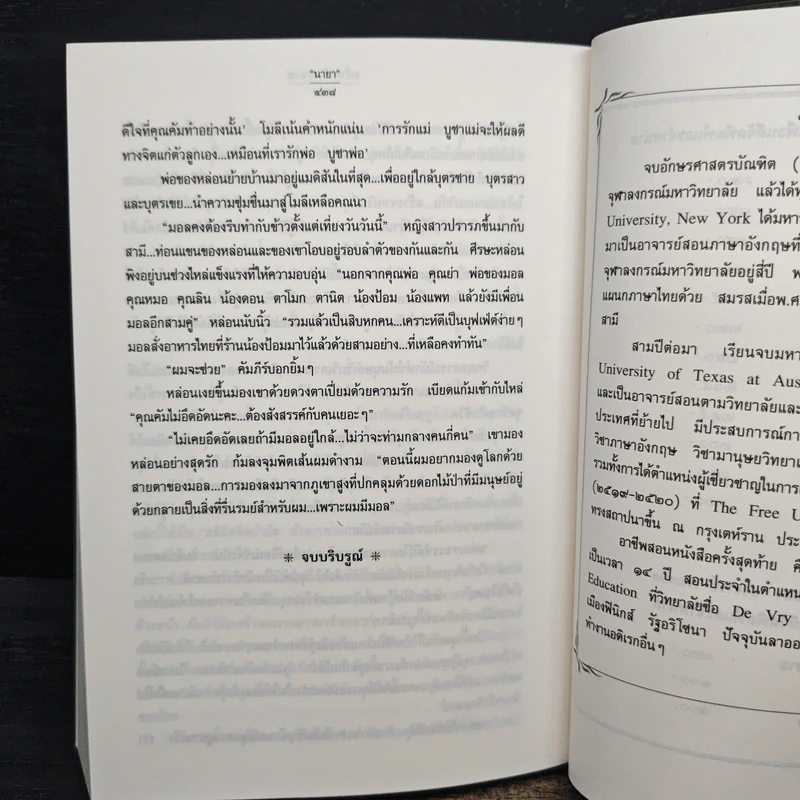 “นายา”
๔๓๘
ดีใจที่คุณคัมทำอย่างนั้น’ โมลีเน้นคำหนักแน่น ‘การรักแม่ บูชาแม่จะให้ผลดี
ทางจิตแก่ตัวลูกเอง...เหมือนที่เรารักพ่อ บูชาพ่อ’
พ่อของหล่อนย้ายบ้านมาอยู่แมดิสันในที่สุด...เพื่ออยู่ใกล้บุตรชาย บุตรสาว
และบุตรเขย...นำความชุ่มชื่นมาสู่โมลีเหลือคณนา
“มอลคงต้องรีบทำกับข้าวตั้งแต่เที่ยงวันวันนี้” หญิงสาวปรารภขึ้นมากับ
สามี...ท่อนแขนของหล่อนและของเขาโอบอยู่รอบลำตัวของกันและกัน ศีรษะหล่อน
พิงอยู่บนช่วงไหล่แข็งแรงที่ให้ความอบอุ่น “นอกจากคุณพ่อ คุณย่า พ่อของมอล
คุณหมอ คุณลิน น้องดอน ตาโมก ตานิต น้องป้อม น้องแพท แล้วยังมีเพื่อน
มอลอีกสามคู่” หล่อนนับนิ้ว “รวมแล้วเป็นสิบหกคน...เคราะห์ดีเป็นบุฟเฟต์ง่ายๆ
มอลสั่งอาหารไทยที่ร้านน้องป้อมมาไว้แล้วด้วยสามอย่าง...ที่เหลือคงทำทัน”
“ผมจะช่วย” คัมภีร์บอกยิ้มๆ
หล่อนเงยขึ้นมองเขาด้วยดวงตาเปี่ยมด้วยความรัก เบียดแก้มเข้ากับไหล่
“คุณคัมไม่อึดอัดนะคะ...ต้องสังสรรค์กับคนเยอะๆ”
“ไม่เคยอึดอัดเลยถ้ามีมอลอยู่ใกล้...ไม่ว่าจะท่ามกลางคนกี่คน” เขามอง
หล่อนอย่างสุดรัก ก้มลงจุมพิตเส้นผมดำงาม “ตอนนี้ผมอยากมองดูโลกด้วย
สายตาของมอล...การมองลงมาจากภูเขาสูงที่ปกคลุมด้วยดอกไม้ป่าที่มีมนุษย์อยู่
ด้วยกลายเป็นสิ่งที่รื่นรมย์สำหรับผม...เพราะผมมีมอล”
✻ จบบริบูรณ์ ✻
จบอักษรศาสตรบัณฑิต (
จุฬาลงกรณ์มหาวิทยาลัย แล้วได้
University, New York ได้มหา
มาเป็นอาจารย์สอนภาษาอังกฤษที่
จุฬาลงกรณ์มหาวิทยาลัยอยู่สี่ปี
แผนกภาษาไทยด้วย สมรสเมื่อพ.ศ
สามี
สามปีต่อมา เรียนจบมหา
University of Texas at Aus
และเป็นอาจารย์สอนตามวิทยาลัยและ
ประเทศที่ย้ายไป มีประสบการณ์กา
วิชาภาษาอังกฤษ วิชามานุษยวิทยา
รวมทั้งการได้ตำแหน่งผู้เชี่ยวชาญในการ
(๒๕๑๙-๒๕๒๐) ที่ The Free U
ทรงสถาปนาขึ้น ณ กรุงเตห์ราน ประ
อาชีพสอนหนังสือครั้งสุดท้าย คื
เป็นเวลา ๑๔ ปี สอนประจำในตำแหน
Education ที่วิทยาลัยชื่อ De Vry
เมืองฟินิกส์ รัฐอริโซนา ปัจจุบันลาออ
ทำงานอดิเรกอื่นๆ